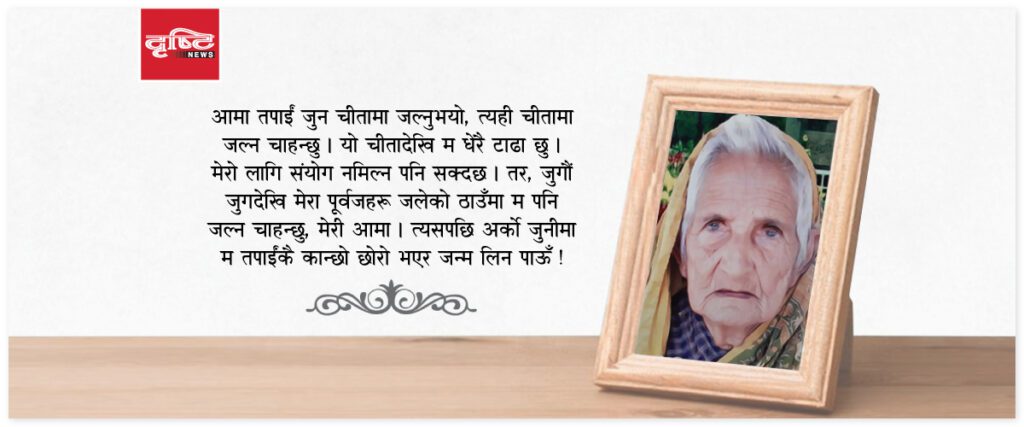 दृष्टि
NEWS
आमा तपाईं जुन चीतामा जल्नुभयो, त्यही चीतामा
जल्न चाहन्छु । यो चीतादेखि म धेरै टाढा छु ।
मेरो लागि संयोग नमिल्न पनि सक्दछ । तर, जुगौं
जुगदेखि मेरा पूर्वजहरू जलेको ठाउँमा म पनि
जल्न चाहन्छु, मेरी आमा । त्यसपछि अर्को जुनीमा
म तपाईंकै कान्छो छोरो भएर जन्म लिन पाऊँ !